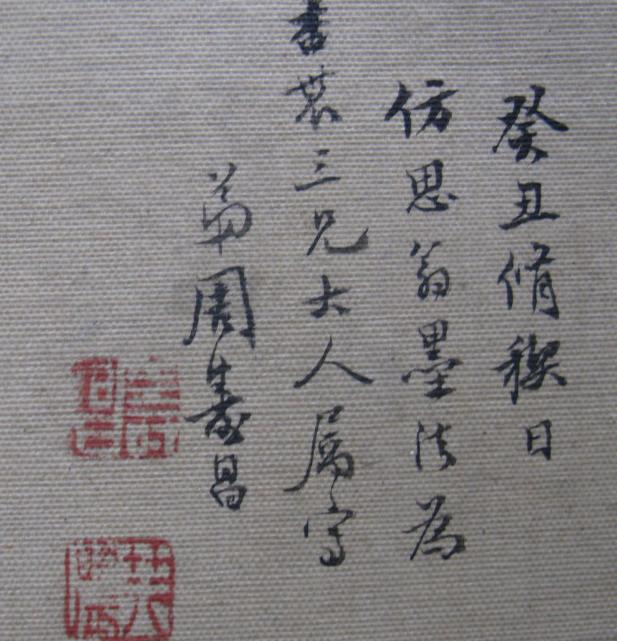 癸丑脩禊日
仿思翁墨法為
書農三兄大人属写
弟周壽昌